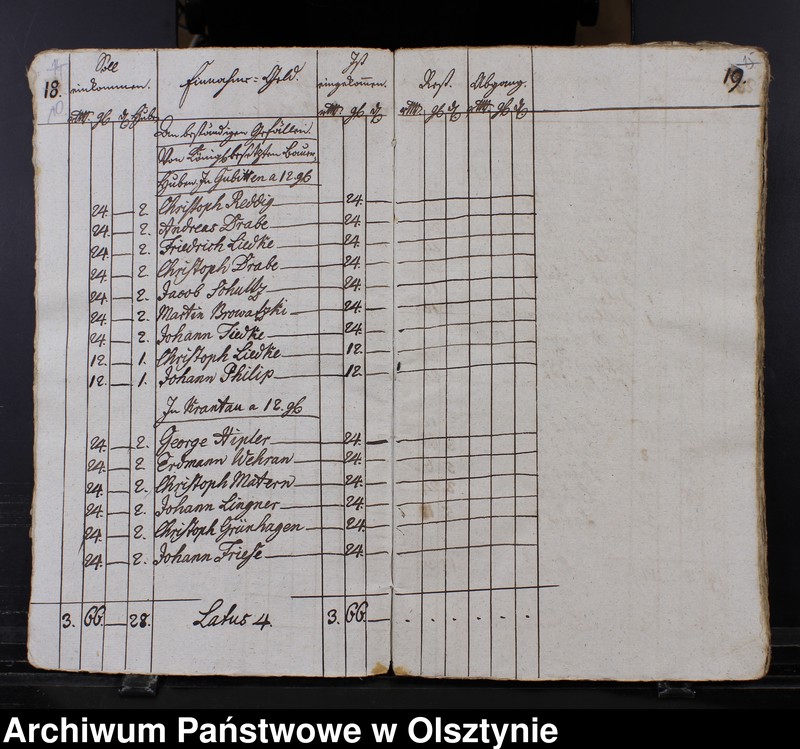 18.
Soll
einkommen.
Einnahme=Geld.
Ist
eingekomen.
Rest.
Abgang.
19.
An beständigen Gefällen.
Von Königl besetzten Bauer
Huben. In Gubitten a 12. gl
24. — 2. Christoph Reddig — 24. —
24. — 2. Andreas Drabe — 24. —
24. — 2. Friedrich Liedke — 24. —
24. — 2. Christoph Drabe — 24. —
24. — 2. Jacob Schultz — 24. —
24. — 2. Martin Browatzki — 24. —
24. — 2. Johann Tiedke — 24. —
12. — 1. Christoph Liedke — 12. —
12. — 1. Johann Philip — 12. —
In Krantau a 12. gl
24. — 2. George Hipler — 24. —
24. — 2. Erdmann Wehran — 24. —
24. — 2. Christoph Matern — 24. —
24. — 2. Johann Lingner — 24. —
24. — 2. Christoph Grünhagen — 24. —
24. — 2. Johann Friese — 24. —
3. 66. — 28. Latus 4. 3. 66. —
Archiwum Państwowe w Olsztynie